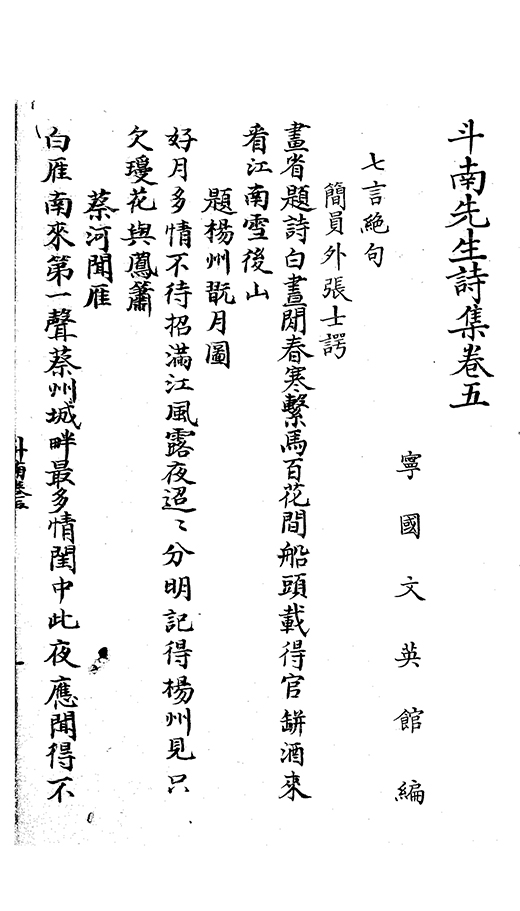 斗南先生詩集卷五
寧國文英館編
七言絶句
簡員外張士諤
畫省題詩白晝閒春寒繫馬百花間船頭載得官缾酒來
看江南雪後山
題楊州翫月圖
好月多情不待招滿江風露夜迢〻分明記得楊州見只
欠瓊花與鳳簫
蔡河聞雁
白雁南來第一聲蔡州城畔最多情閨中此夜應聞得不
斗南卷五